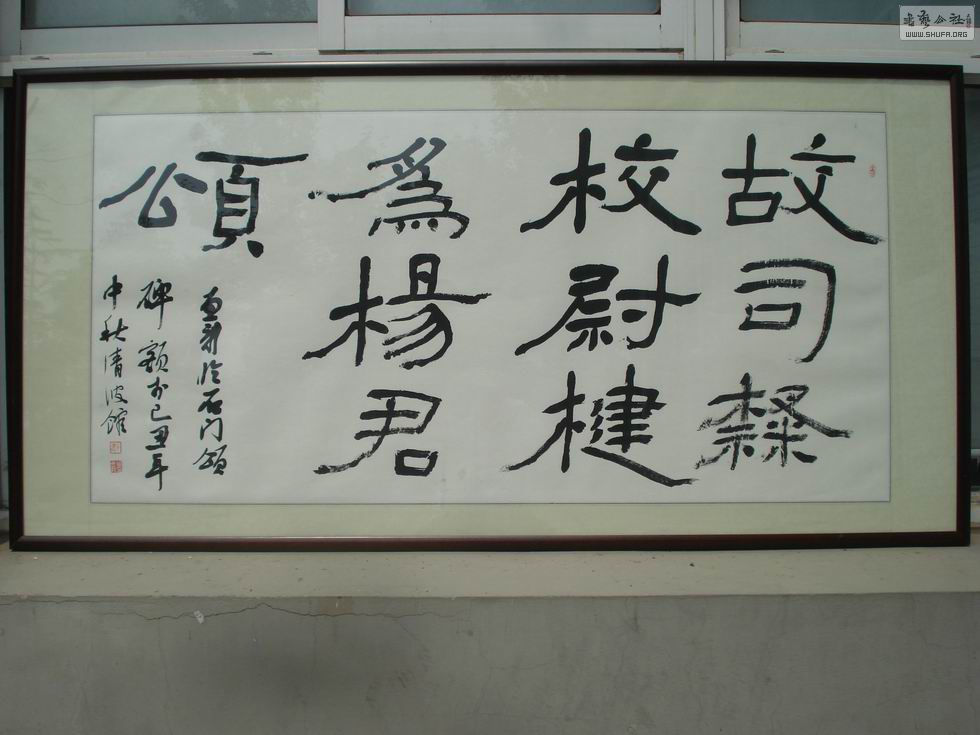 故司隸
校尉楗
為楊君
頌
臨石門頌
碑額於己丑年
中秋清波館
書藝公社
WWW.SHUFA.ORG